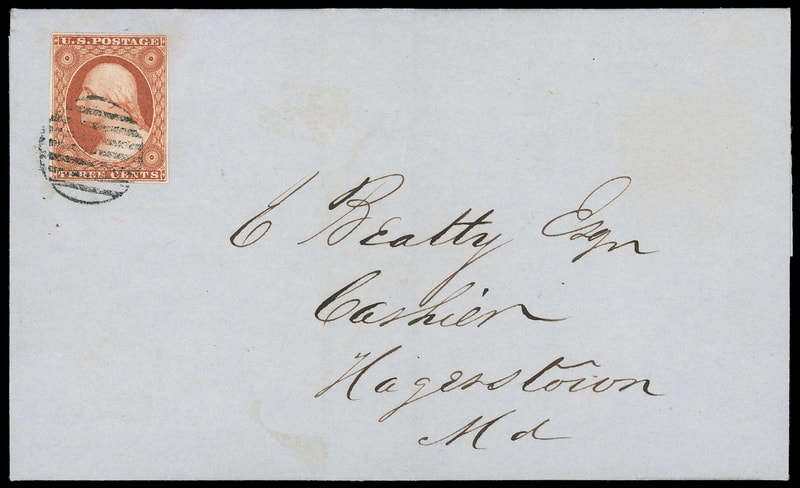 U.S. POSTAGE
THREE CENTS
E Beatty Esqr
Cashier
Hagerstown
Md